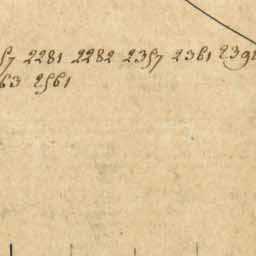 57 2281 2282 2357 2361 239
63 2561